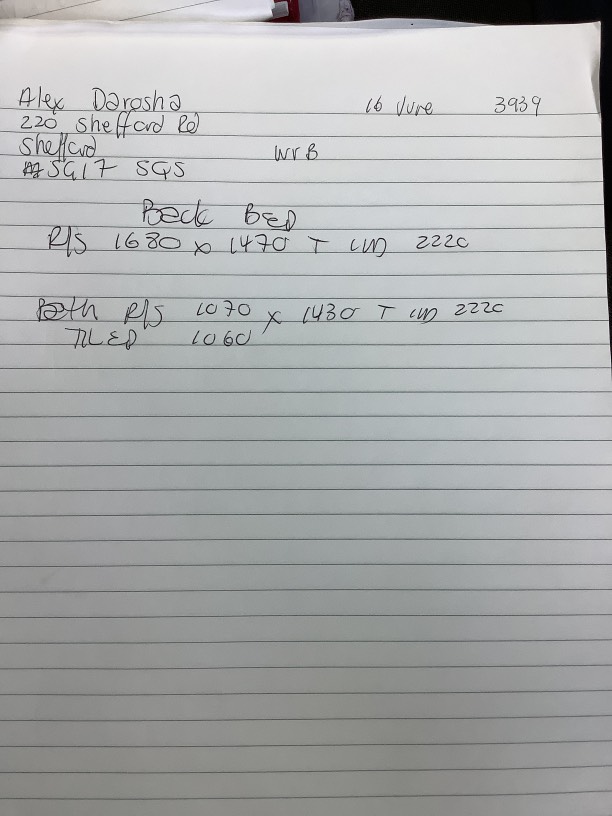 Alex Darosha 16 June 3939
220 Shefford Rd
Shefford WVB
SG17 5QS
Back BED
R/S 1680 x 1470 T 2220
Bath R/S 1070 x 1430 T 2220
TILED 1060